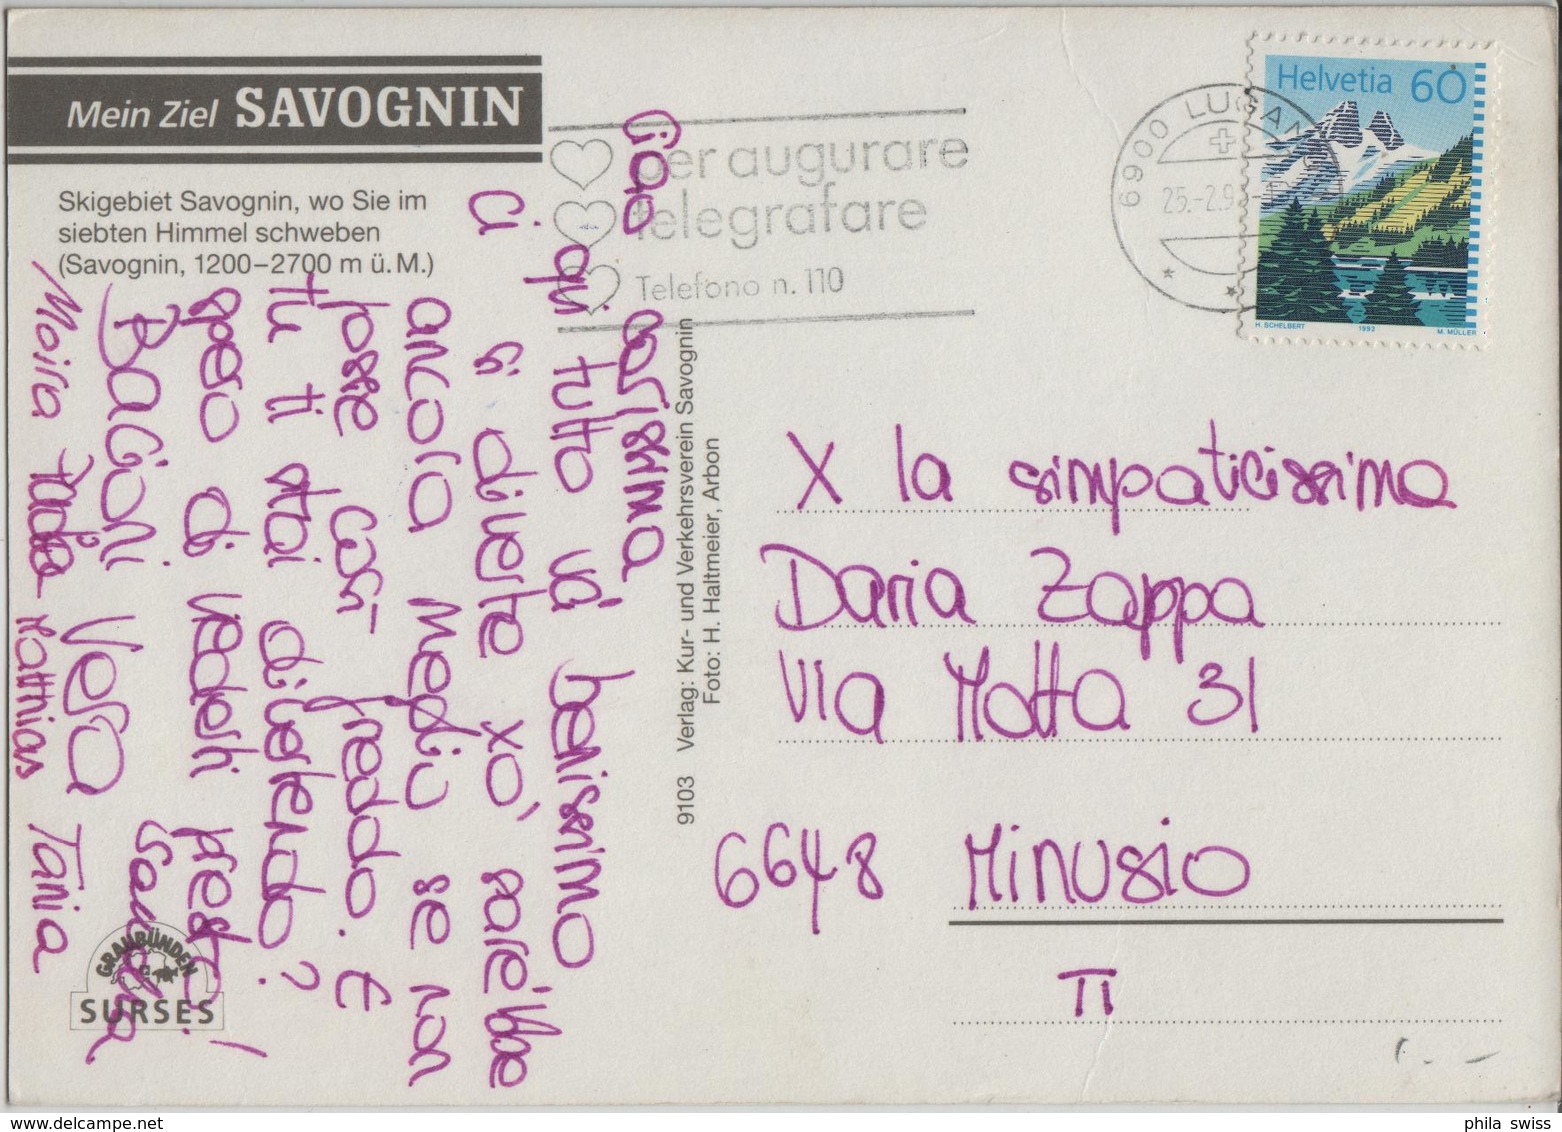 Mein Ziel SAVOGNIN
Skigebiet Savognin, wo Sie im
siebten Himmel schweben
(Savognin, 1200–2700 m ü. M.)
Ciao carissima
qui tutto và benissimo
Ci si diverte xò sarebbe
ancora meglio se non
fosse così freddo. E
tu ti stai divertendo?
spero di vederti presto!
Bacioni Vera
Moira Katthias Tania
GRAUBÜNDEN
SURSES
per augurare
telegrafare
Telefono n. 110
6900 LUGANO
Helvetia 60
H. SCHELBERT 1993 M. MÜLLER
9103 Verlag: Kur- und Verkehrsverein Savognin
Foto: H. Haltmeier, Arbon
X la simpaticissima
Daria Zappa
Via Motta 31
6648 Minusio
TI
www.delcampe.net
phila_swiss